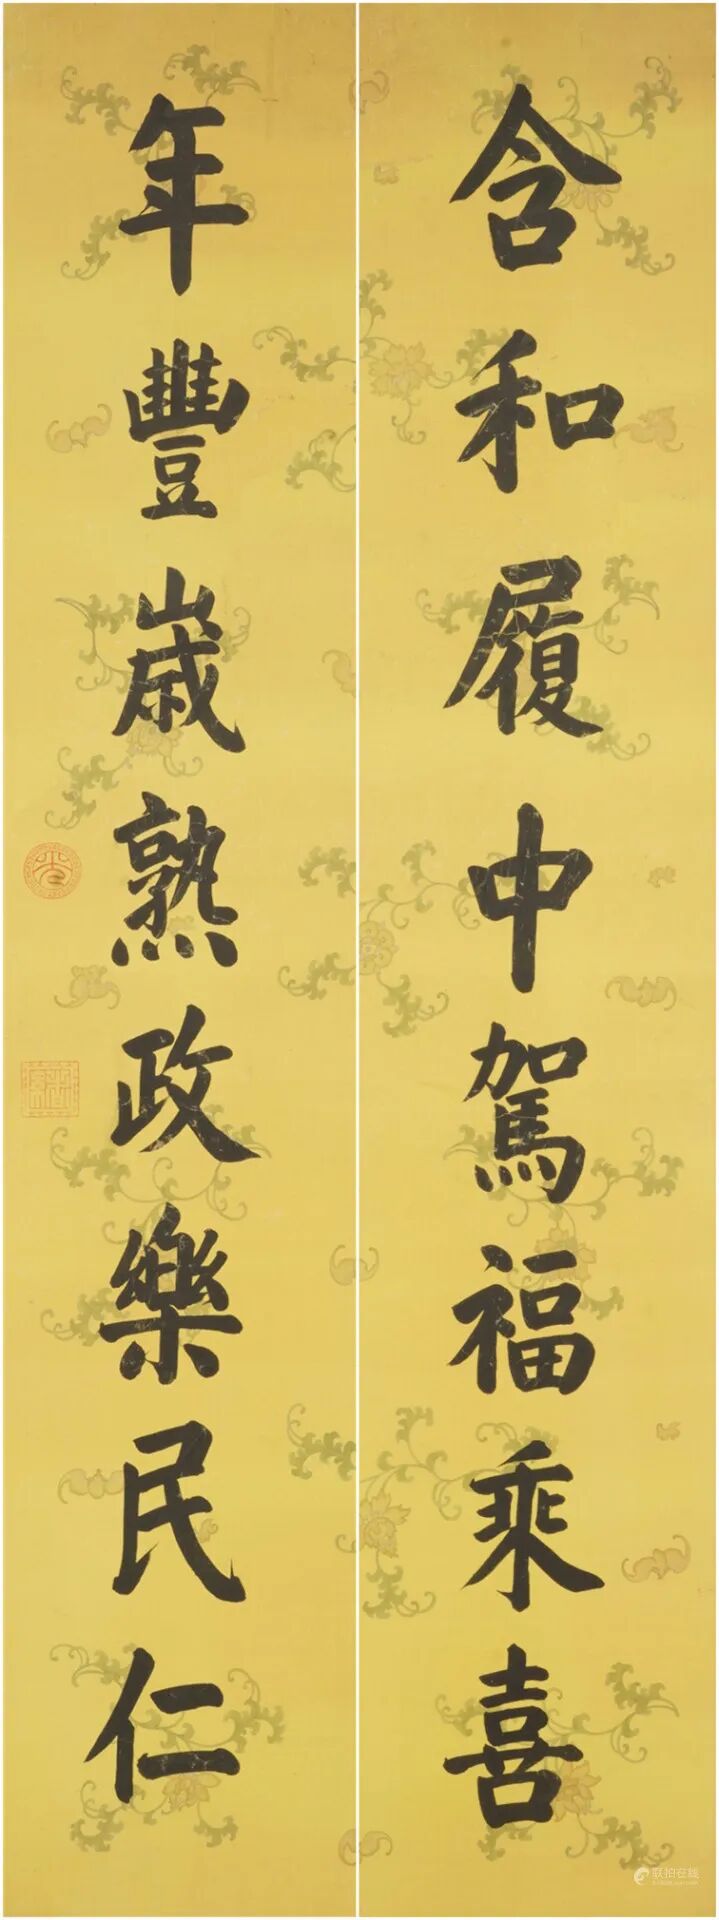 含和履中駕福乘喜
年豐歲熟政樂民仁
联拍在线